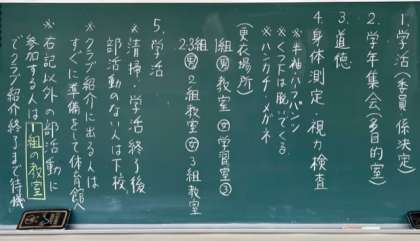 1. 学活(委員・係決定)
2. 学年集会(多目的室)
3. 道徳
4. 身体測定・視力検査
※半袖・ハーパン
※くつ下は脱いでくる
※ハンカチ・メガネ
(更衣場所)
1組男教室 女学習室③
2.3組
男2組教室 女3組教室
5. 学活
※清掃・学活終了後
部活動のない人は下校
※クラブ紹介に出る人は
すぐに準備をして体育館へ
※右記以外の部活動に
参加する人は1組の教室
でクラブ紹介終了まで待機